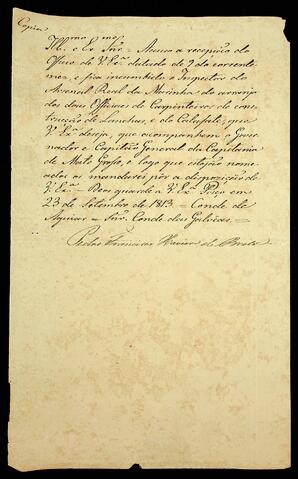 Copia
Ill.mo e Ex.mo Snr. = Accuso a recepção do
Officio de V. Ex.ª datado de 9 do corrente
mez, e fica incumbido o Inspector do
Arsenal Real da Marinha do arranjo
dos dous Officiaes de Carpinteiros de cons-
trucção de Lanchas, e do Calafate, que
V. Ex.ª deseja, que acompanhem o Gover-
nador e Capitão General da Capitania
de Mato Grosso, e logo que estejão nome-
ados os mandarei pôr a disposição de
V. Ex.ª = Deos guarde a V. Ex.ª Paço em
23 de Setembro de 1813 = Conde de
Aguiar = Snr. Conde das Galvêas. =
Pedro Francisco Xavier de Brito